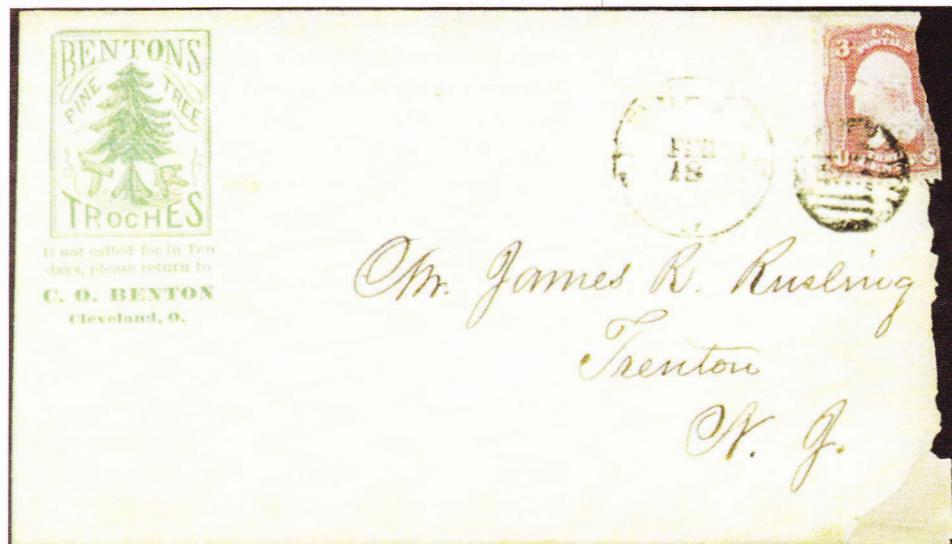 BENTONS
PINE TREE
TAR
TROCHES
If not called for in Ten
days, please return to
C. O. BENTON
Cleveland, O.
FEB
18
3
U.S.
POSTAGE
Mr. James R. Rusling
Trenton
N. J.